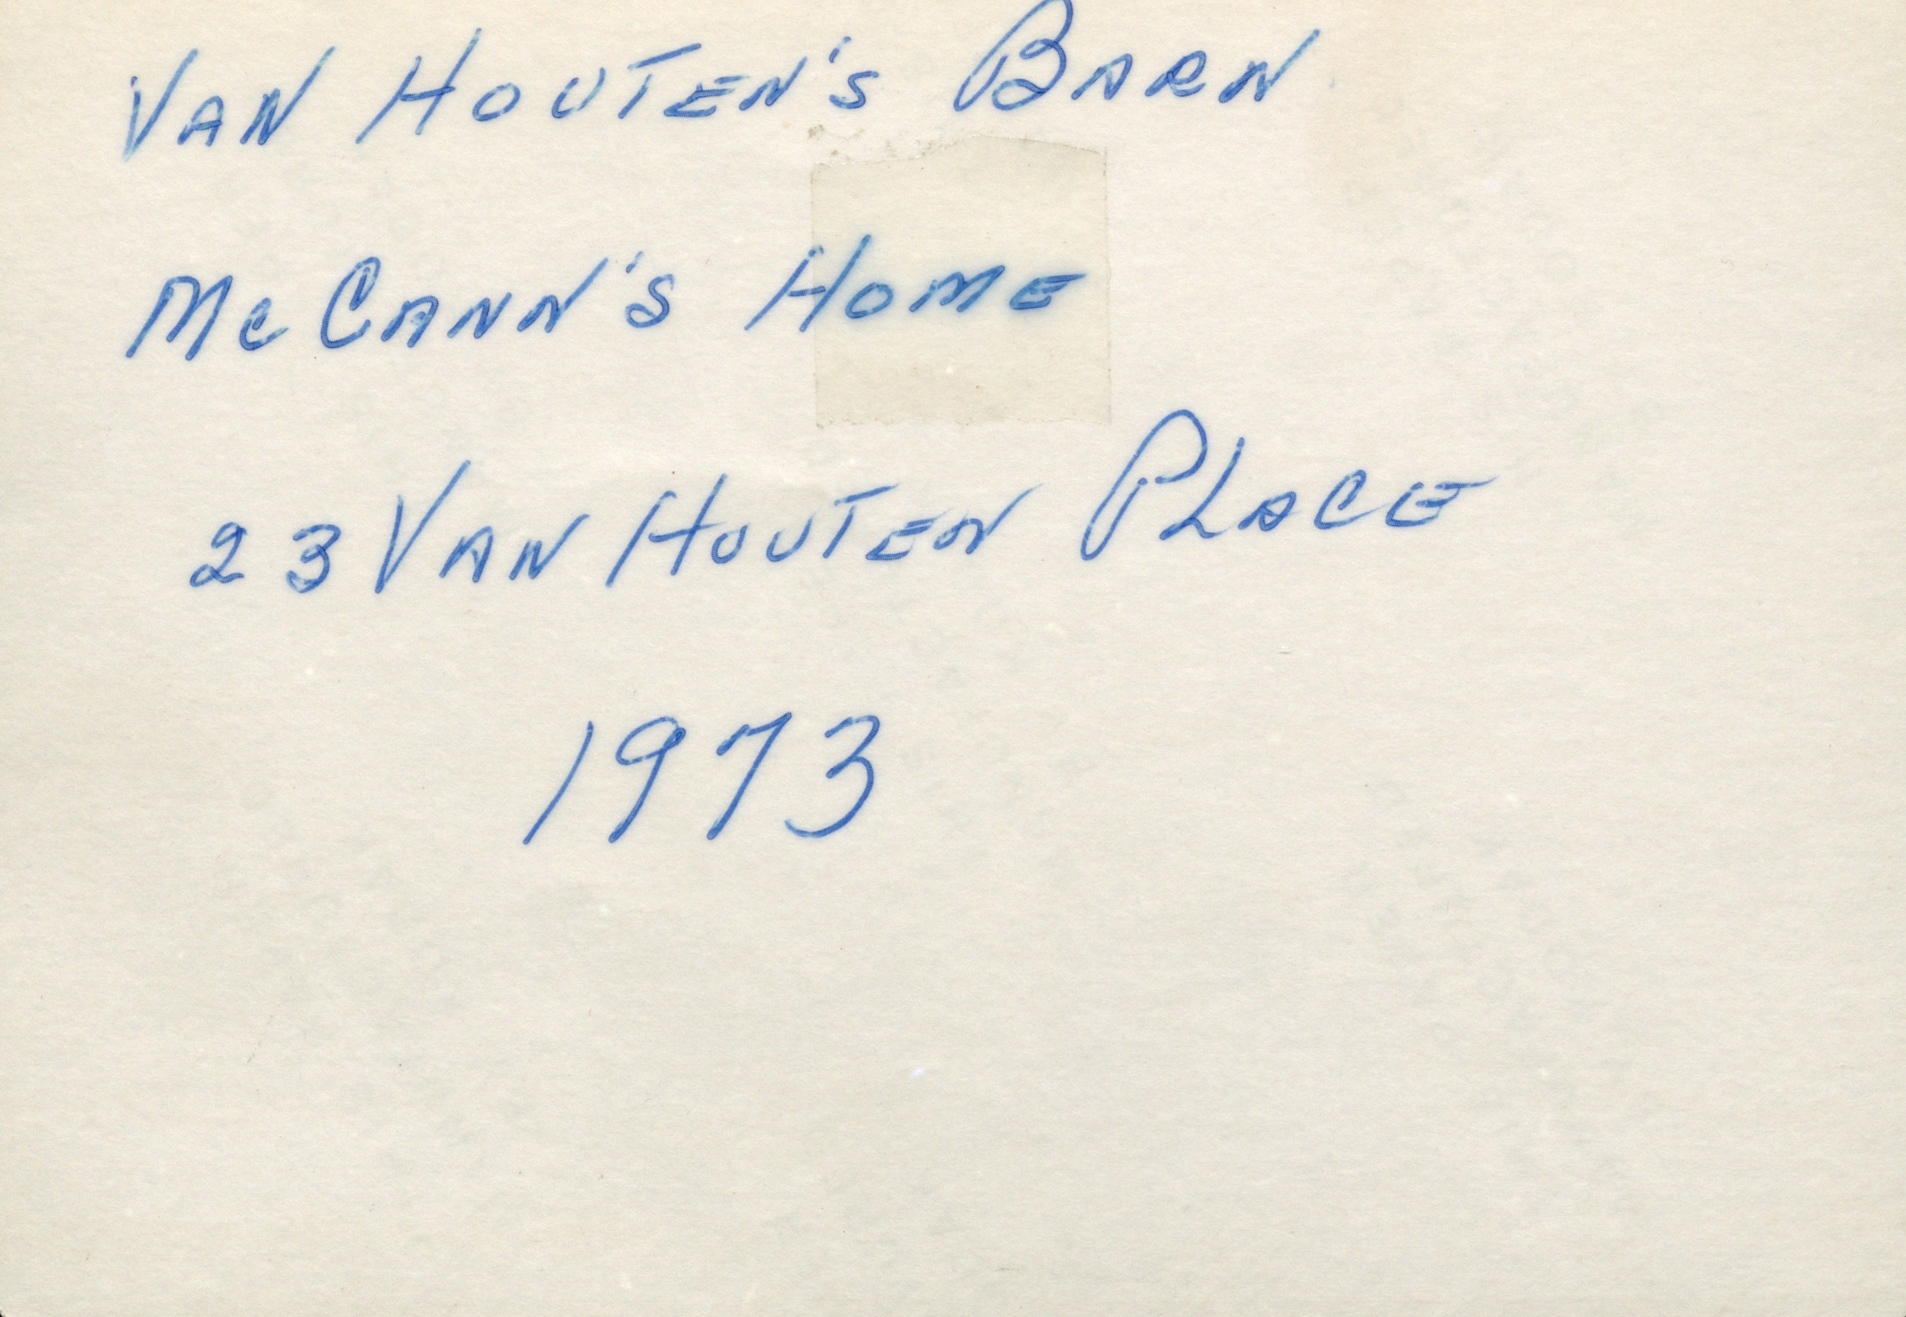 VAN HOUTEN'S BARN
McCANN'S HOME
23 VAN HOUTEN PLACE
1973